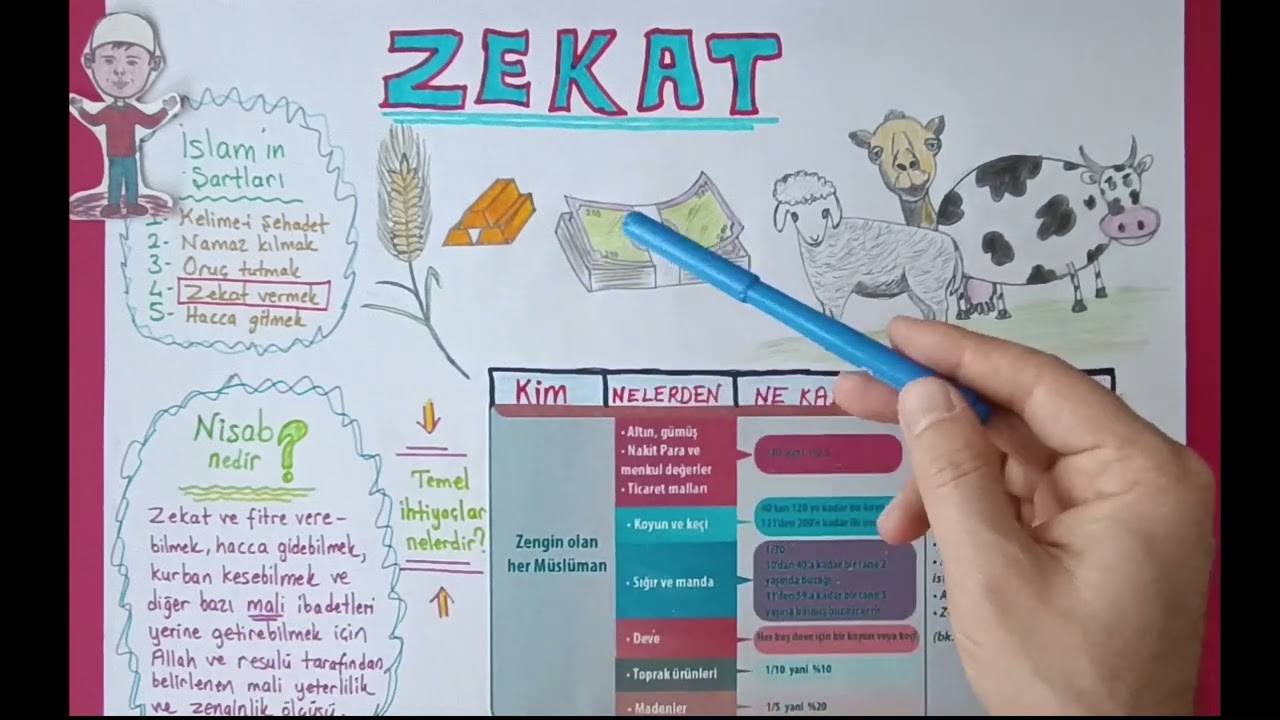 ZEKAT
İslam'in
Şartları
1- Kelime-i Şehadet
2- Namaz kılmak
3- Oruç tutmak
4- Zekat vermek
5- Hacca gitmek
210
210
Nisab ?
nedir
Zekat ve fitre vere-
bilmek, hacca gidebilmek,
kurban kesebilmek ve
diğer bazı mali ibadetleri
yerine getirebilmek için
Allah ve resulü tarafından
belirlenen mali yeterlilik
ve zenginlik ölçüsü.
Temel
ihtiyoçlar
nelerdir?
Kim
NELERDEN
NE KA
Zengin olan
her Müslüman
• Altın, gümüş
• Nakit Para ve
menkul değerler
• Ticaret malları
• Koyun ve keçi
40'tan 120'ye kadar bir
121'den 200'e kadar iki
• Sığır ve manda
1/30
30'dan 40'a kadar bir tane 2
yaşında buzağı
41'den 59'a kadar bir tane 3
• Deve
Her beş deve için bir koyun veya keçi
• Toprak ürünleri
1/10 yani %10
• Madenler
1/5 yani %20
(bk.